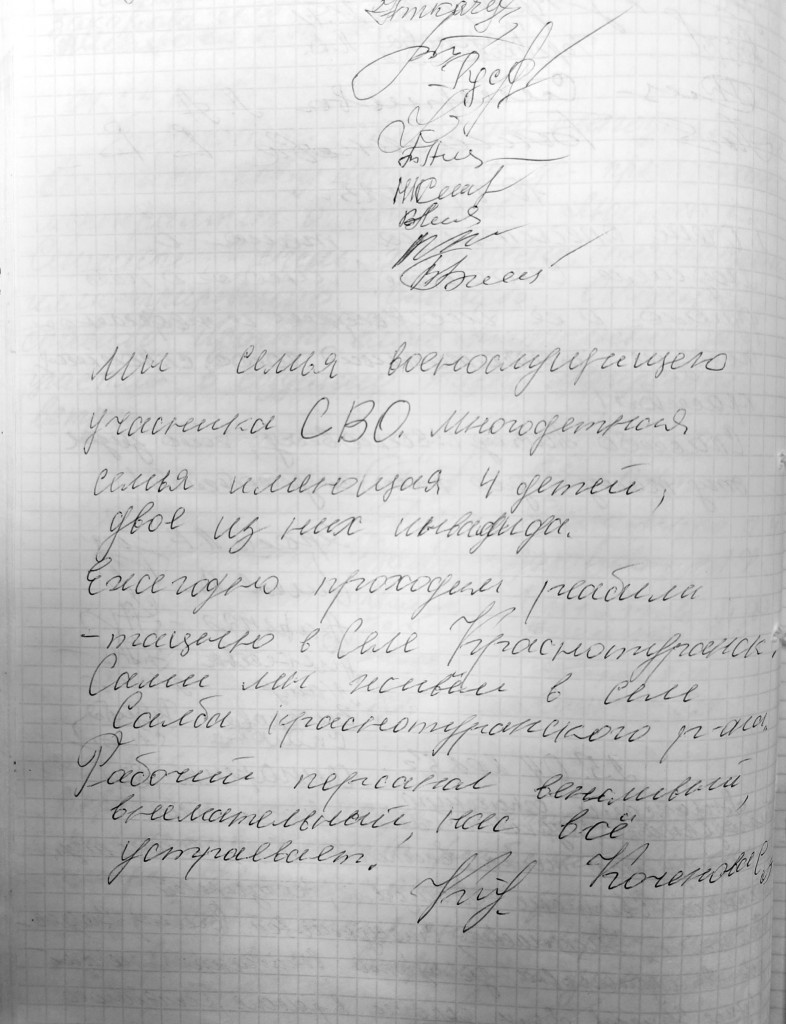 Мы семья военослужищего
учасника СВО. Многодетная
семья имеющая 4 детей,
двое из них инвалида.
Ежегодно проходим реабили
-тацию в Селе Краснотуранск.
Сами мы живём в селе
Салба Краснотуранского р-она.
Рабочий персанал вежливый,
внимательный, нас всё
устраевает.